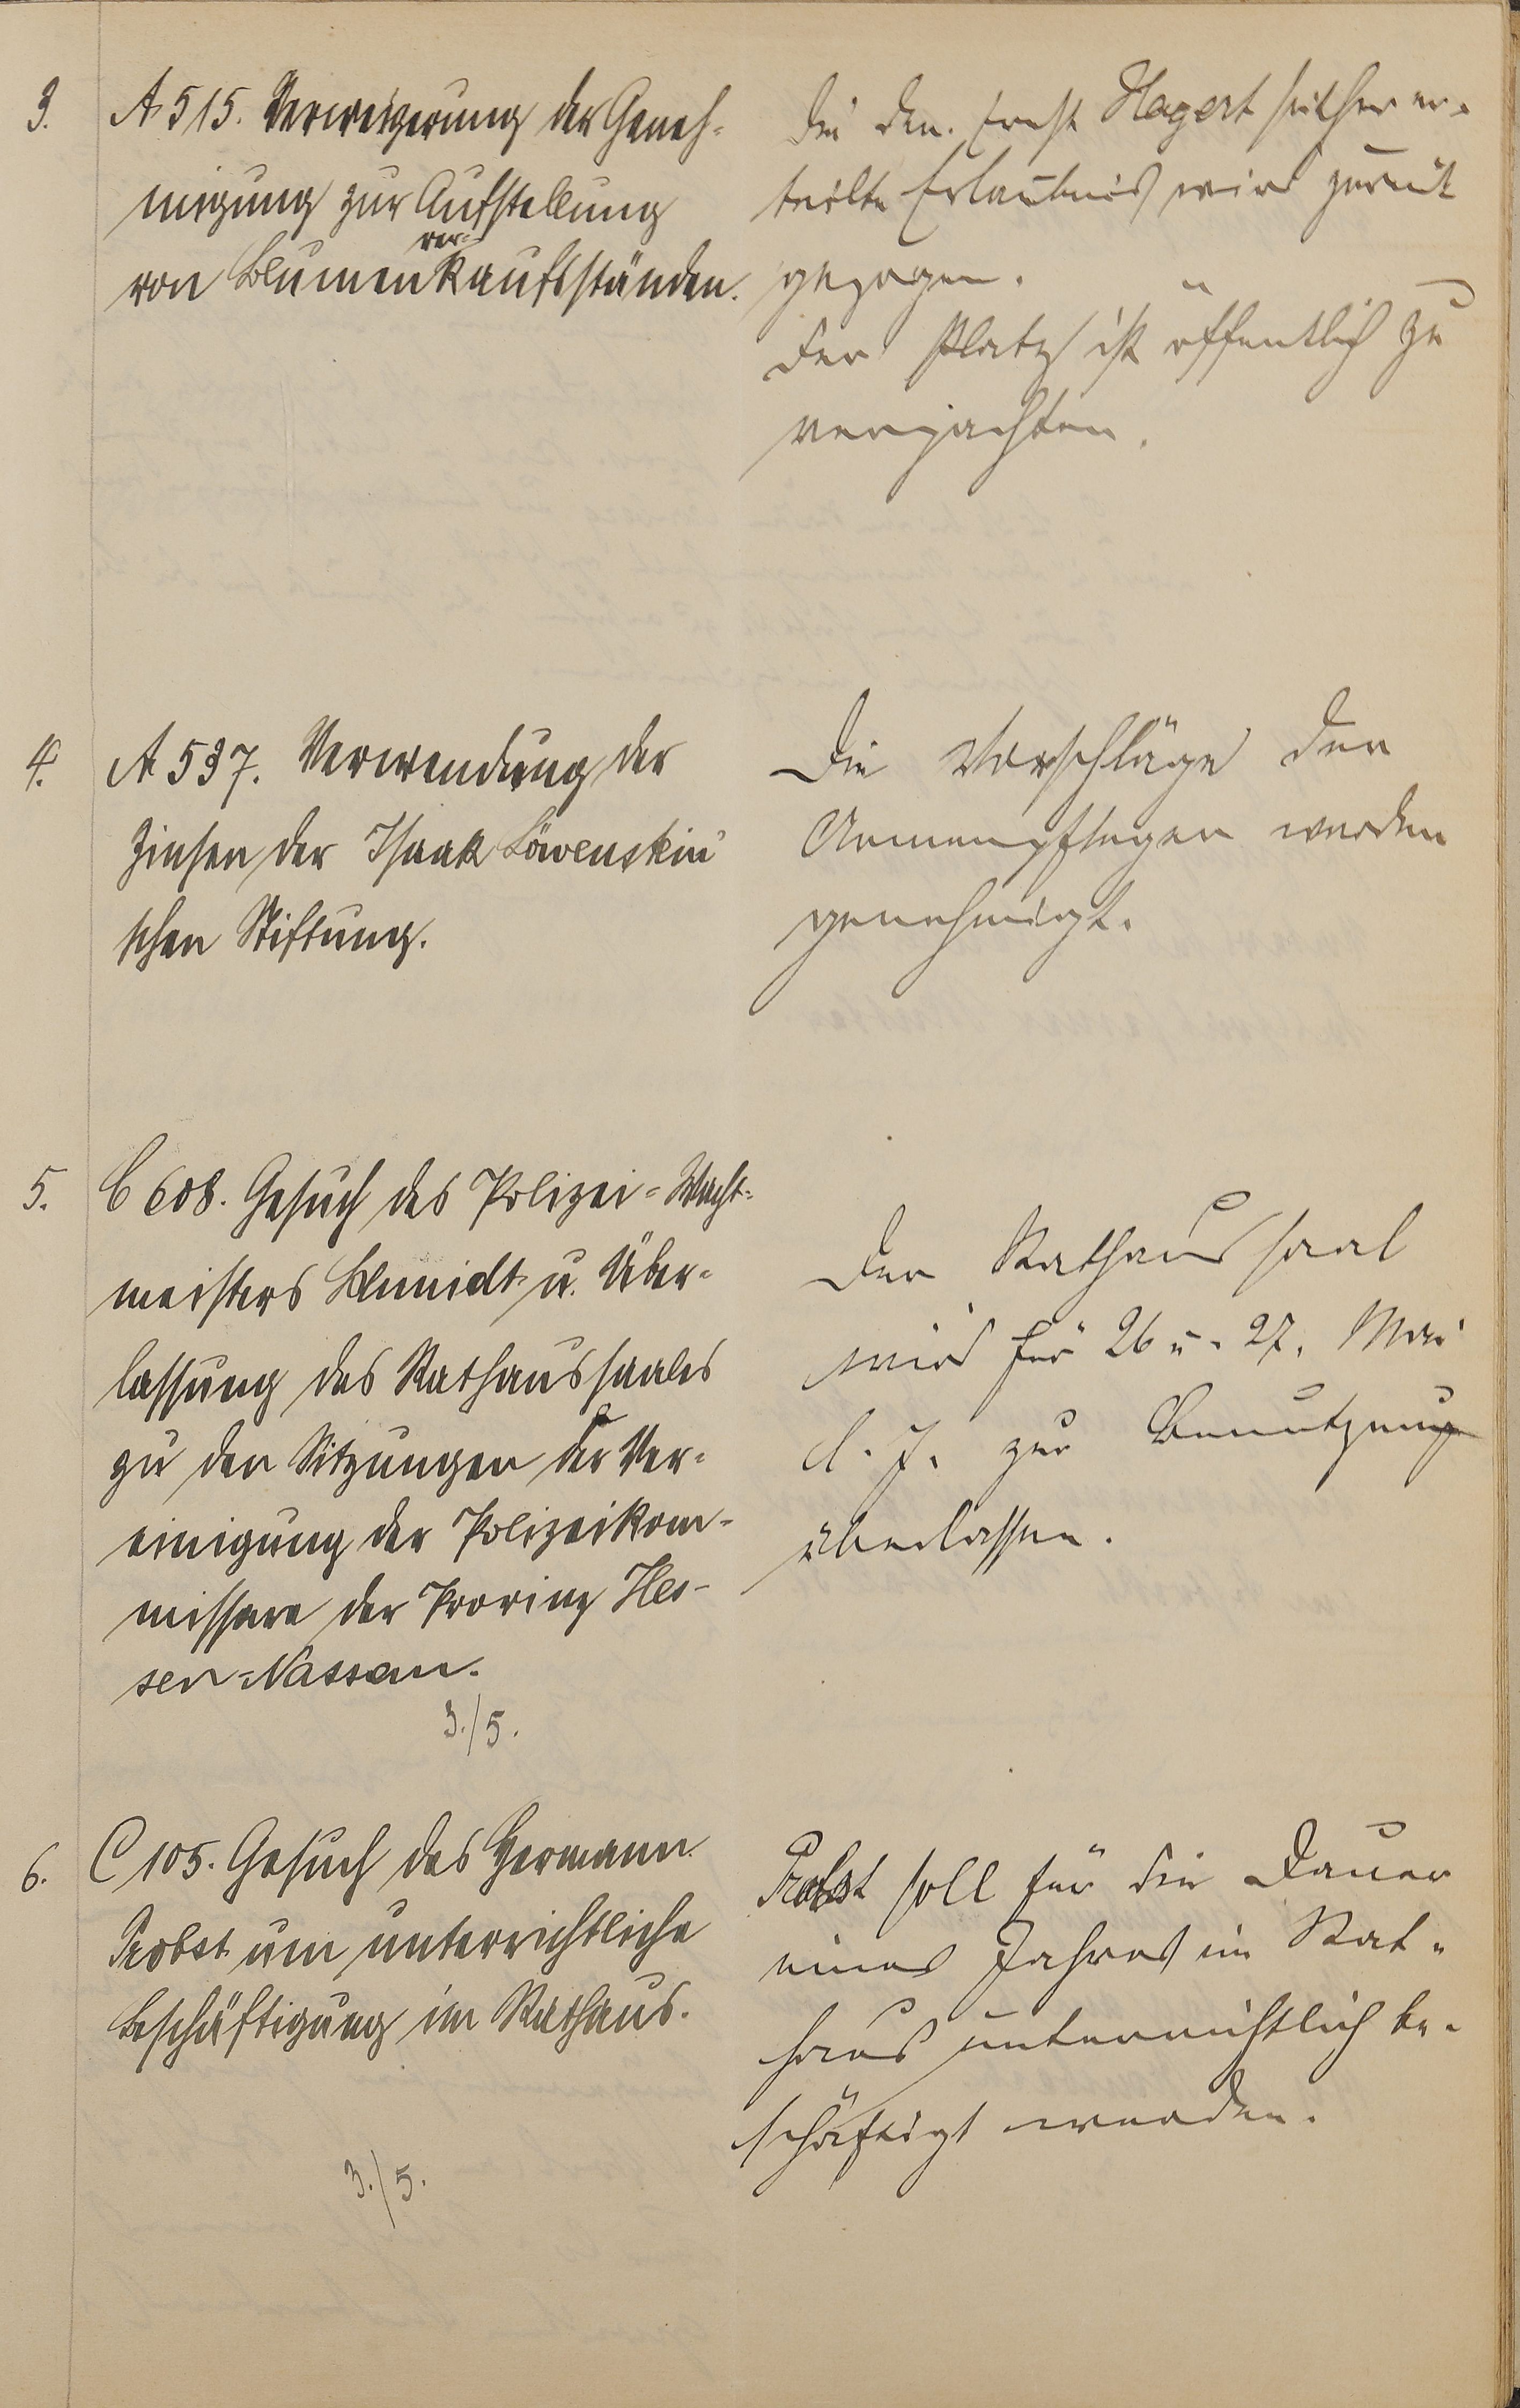 3.
A 515. Verweigerung der Geneh-
migung zur Aufstellung
ver-
von Blumenkaufsständen.
Die dem Ernst Hagert seither er-
teilte Erlaubnis wird zurück
gezogen.
Der Platz ist öffentlich zu
verpachten.
4.
A 537. Verwendung der
Zinsen der Isaak Löwenstein'
schen Stiftung.
Die Vorschläge der
Armenpfleger werden
genehmigt.
5.
C 608. Gesuch des Polizei-Wacht-
meisters Schmidt u. Über-
lassung des Rathaussaales
zu den Sitzungen der Ver-
einigung der Polizeikom-
missare der Provinz Hes-
sen-Nassau.
3./5.
Der Rathaussaal
wird für 26 u. 27. Mai
d. J. zur Benutzung
überlassen.
6.
C 105. Gesuch des Hermann
Probst um unterrichtliche
Beschäftigung im Rathaus.
3./5.
Probst soll für die Dauer
eines Jahres im Rat-
haus unterrichtlich be-
schäftigt werden.